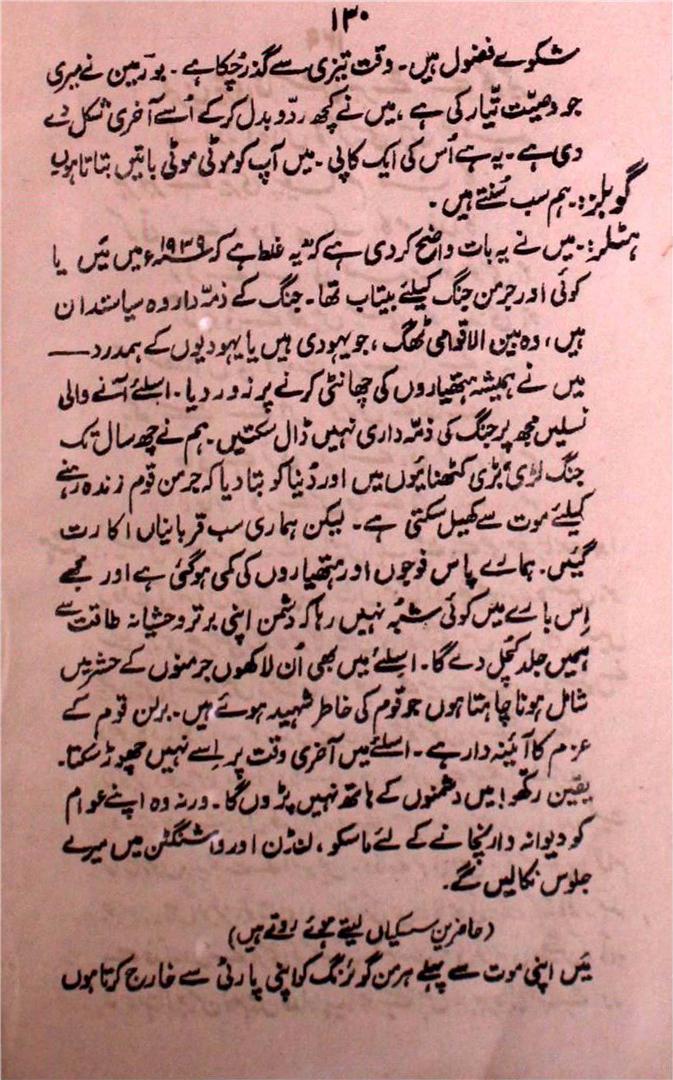 ۱۳۰
شکوے فضول ہیں۔ وقت تیزی سے گذر چُکا ہے۔ بورمین نے میری
جو وصیّت تیّار کی ہے ، میں نے کچھ ردّو بدل کرکے اُسے آخری شکل دے
دی ہے۔ یہ ہے اُس کی ایک کاپی۔ میں آپ کو موٹی موٹی باتیں بتاتا ہوں
گوبلز:۔ ہم سب سُنتے ہیں۔
ہٹلر:۔ میں نے یہ بات واضح کر دی ہے کہ "یہ غلط ہے کہ ۱۹۳۹ء میں مَیں یا
کوئی اور جرمن جنگ کیلئے بیتاب تھا۔ جنگ کے ذمّہ دار وہ سیاستدان
ہیں ، وہ بین الاقوامی ٹھگ ، جو یہودی ہیں یا یہودیوں کے ہمدرد ــــ
میں نے ہمیشہ ہتھیاروں کی چھانٹی کرنے پر زور دیا۔ اسلئے آنے والی
نسلیں مجھ پر جنگ کی ذمّہ داری نہیں ڈال سکتیں۔ ہم نے چھ سال تک
جنگ لڑی؛ بڑی کٹھنایُوں میں اور دُنیا کو بتا دیا کہ جرمن قوم زندہ رہنے
کیلئے موت سے کھیل سکتی ہے۔ لیکن ہماری سب قربانیاں اکارت
گیئں۔ ہمارے پاس فوجوں اور ہتھیاروں کی کمی ہو گئی ہے اور مجھے
اِس بارے میں کوئی شُبہ نہیں رہا کہ دشمن اپنی برتر وحشیانہ طاقت سے
ہمیں جلد کُچل دے گا۔ اسلئے میں بھی اُن لاکھوں جرمنوں کے حشر میں
شامل ہونا چاہتا ہوں جو قوم کی خاطر شہید ہوئے ہیں۔ برلن قوم کے
عزم کا آئینہ دار ہے۔ اسلئے میں آخری وقت پر اِسے نہیں چھوڑ سکتا۔
یقین رکھو! میں دشمنوں کے ہاتھ نہیں پڑوں گا۔ ورنہ وہ اپنے عوام
کو دیوانہ وار نچانے کے لئے ماسکو ، لنڈن اور واشنگٹن میں میرے
جلوس نکالیں گے۔
(حاضرین سسکیاں لیتے ہوئے روتے ہیں)
مَیں اپنی موت سے پہلے ہرمن گوئرنگ کو اپنی پارٹی سے خارج کرتا ہوں